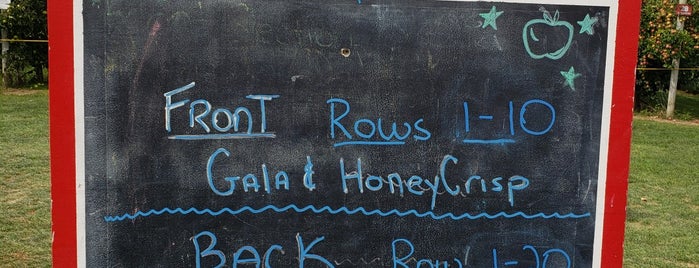 Front Rows 1-10
Gala & HoneyCrisp
Back Row 1-20